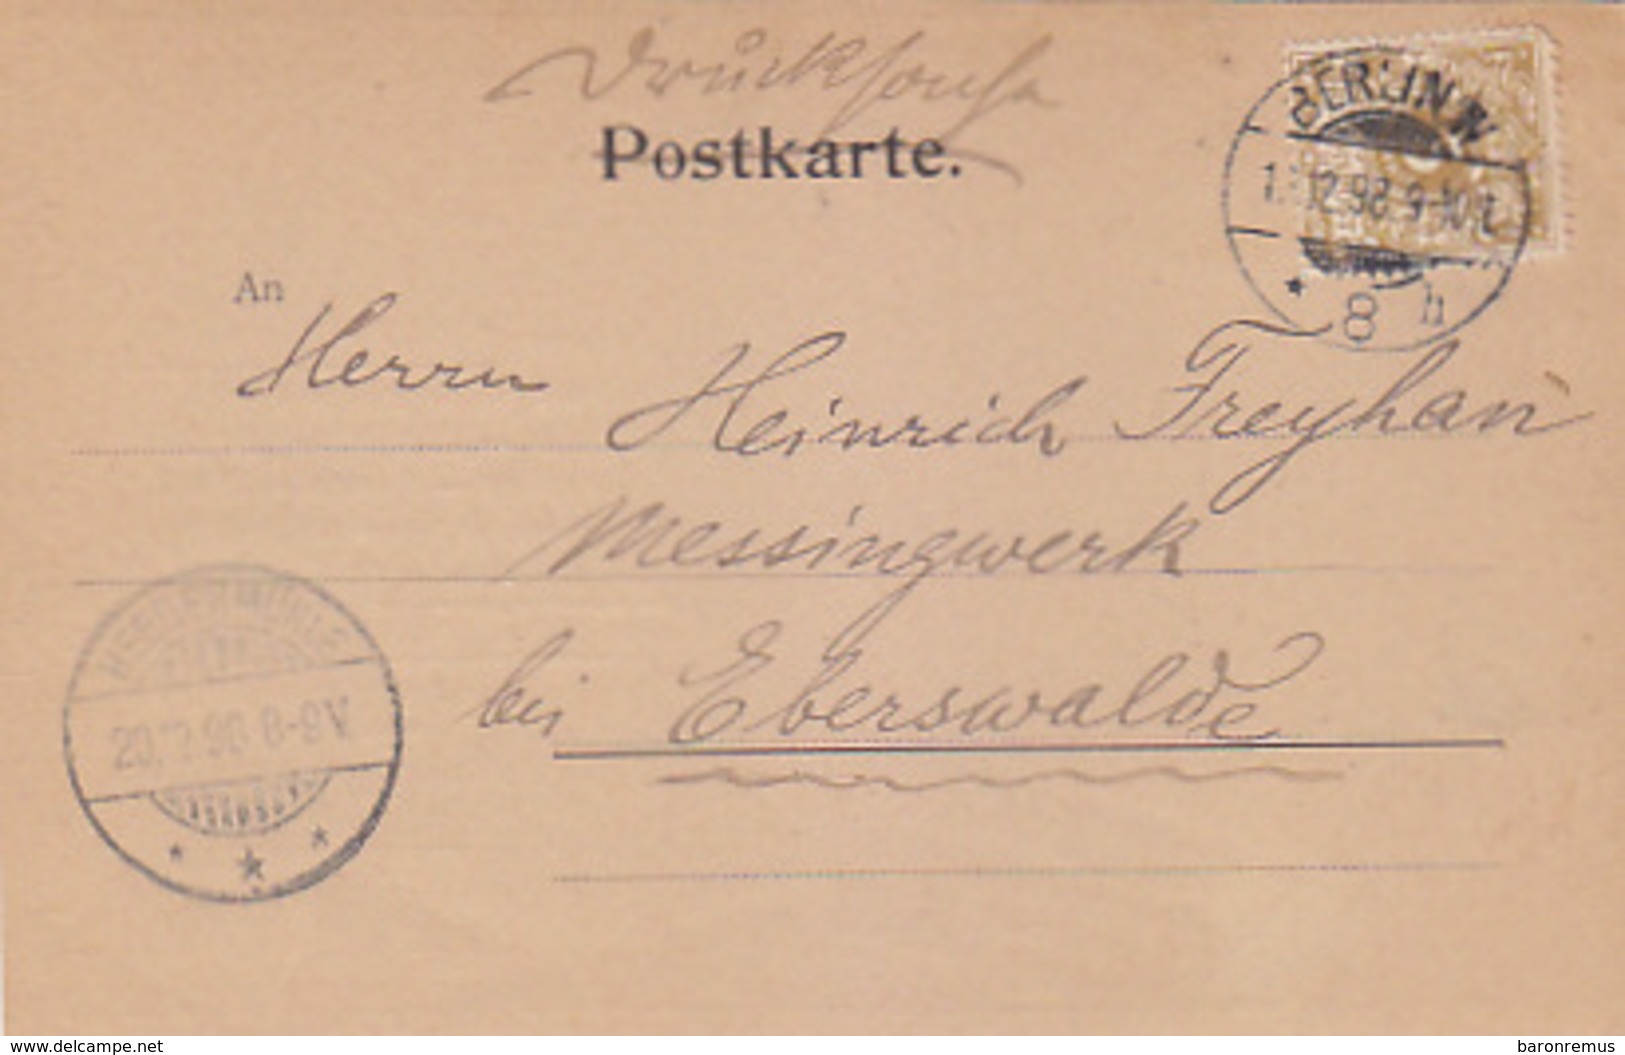 Drucksache
Postkarte.
BERLIN.N
12.98.9-10
* 8 h
An
Herrn Heinrich Freyhan
Messingwerk
bei Eberswalde
HEEGERMÜHLE
8-9V
www.delcampe.net
baronremus